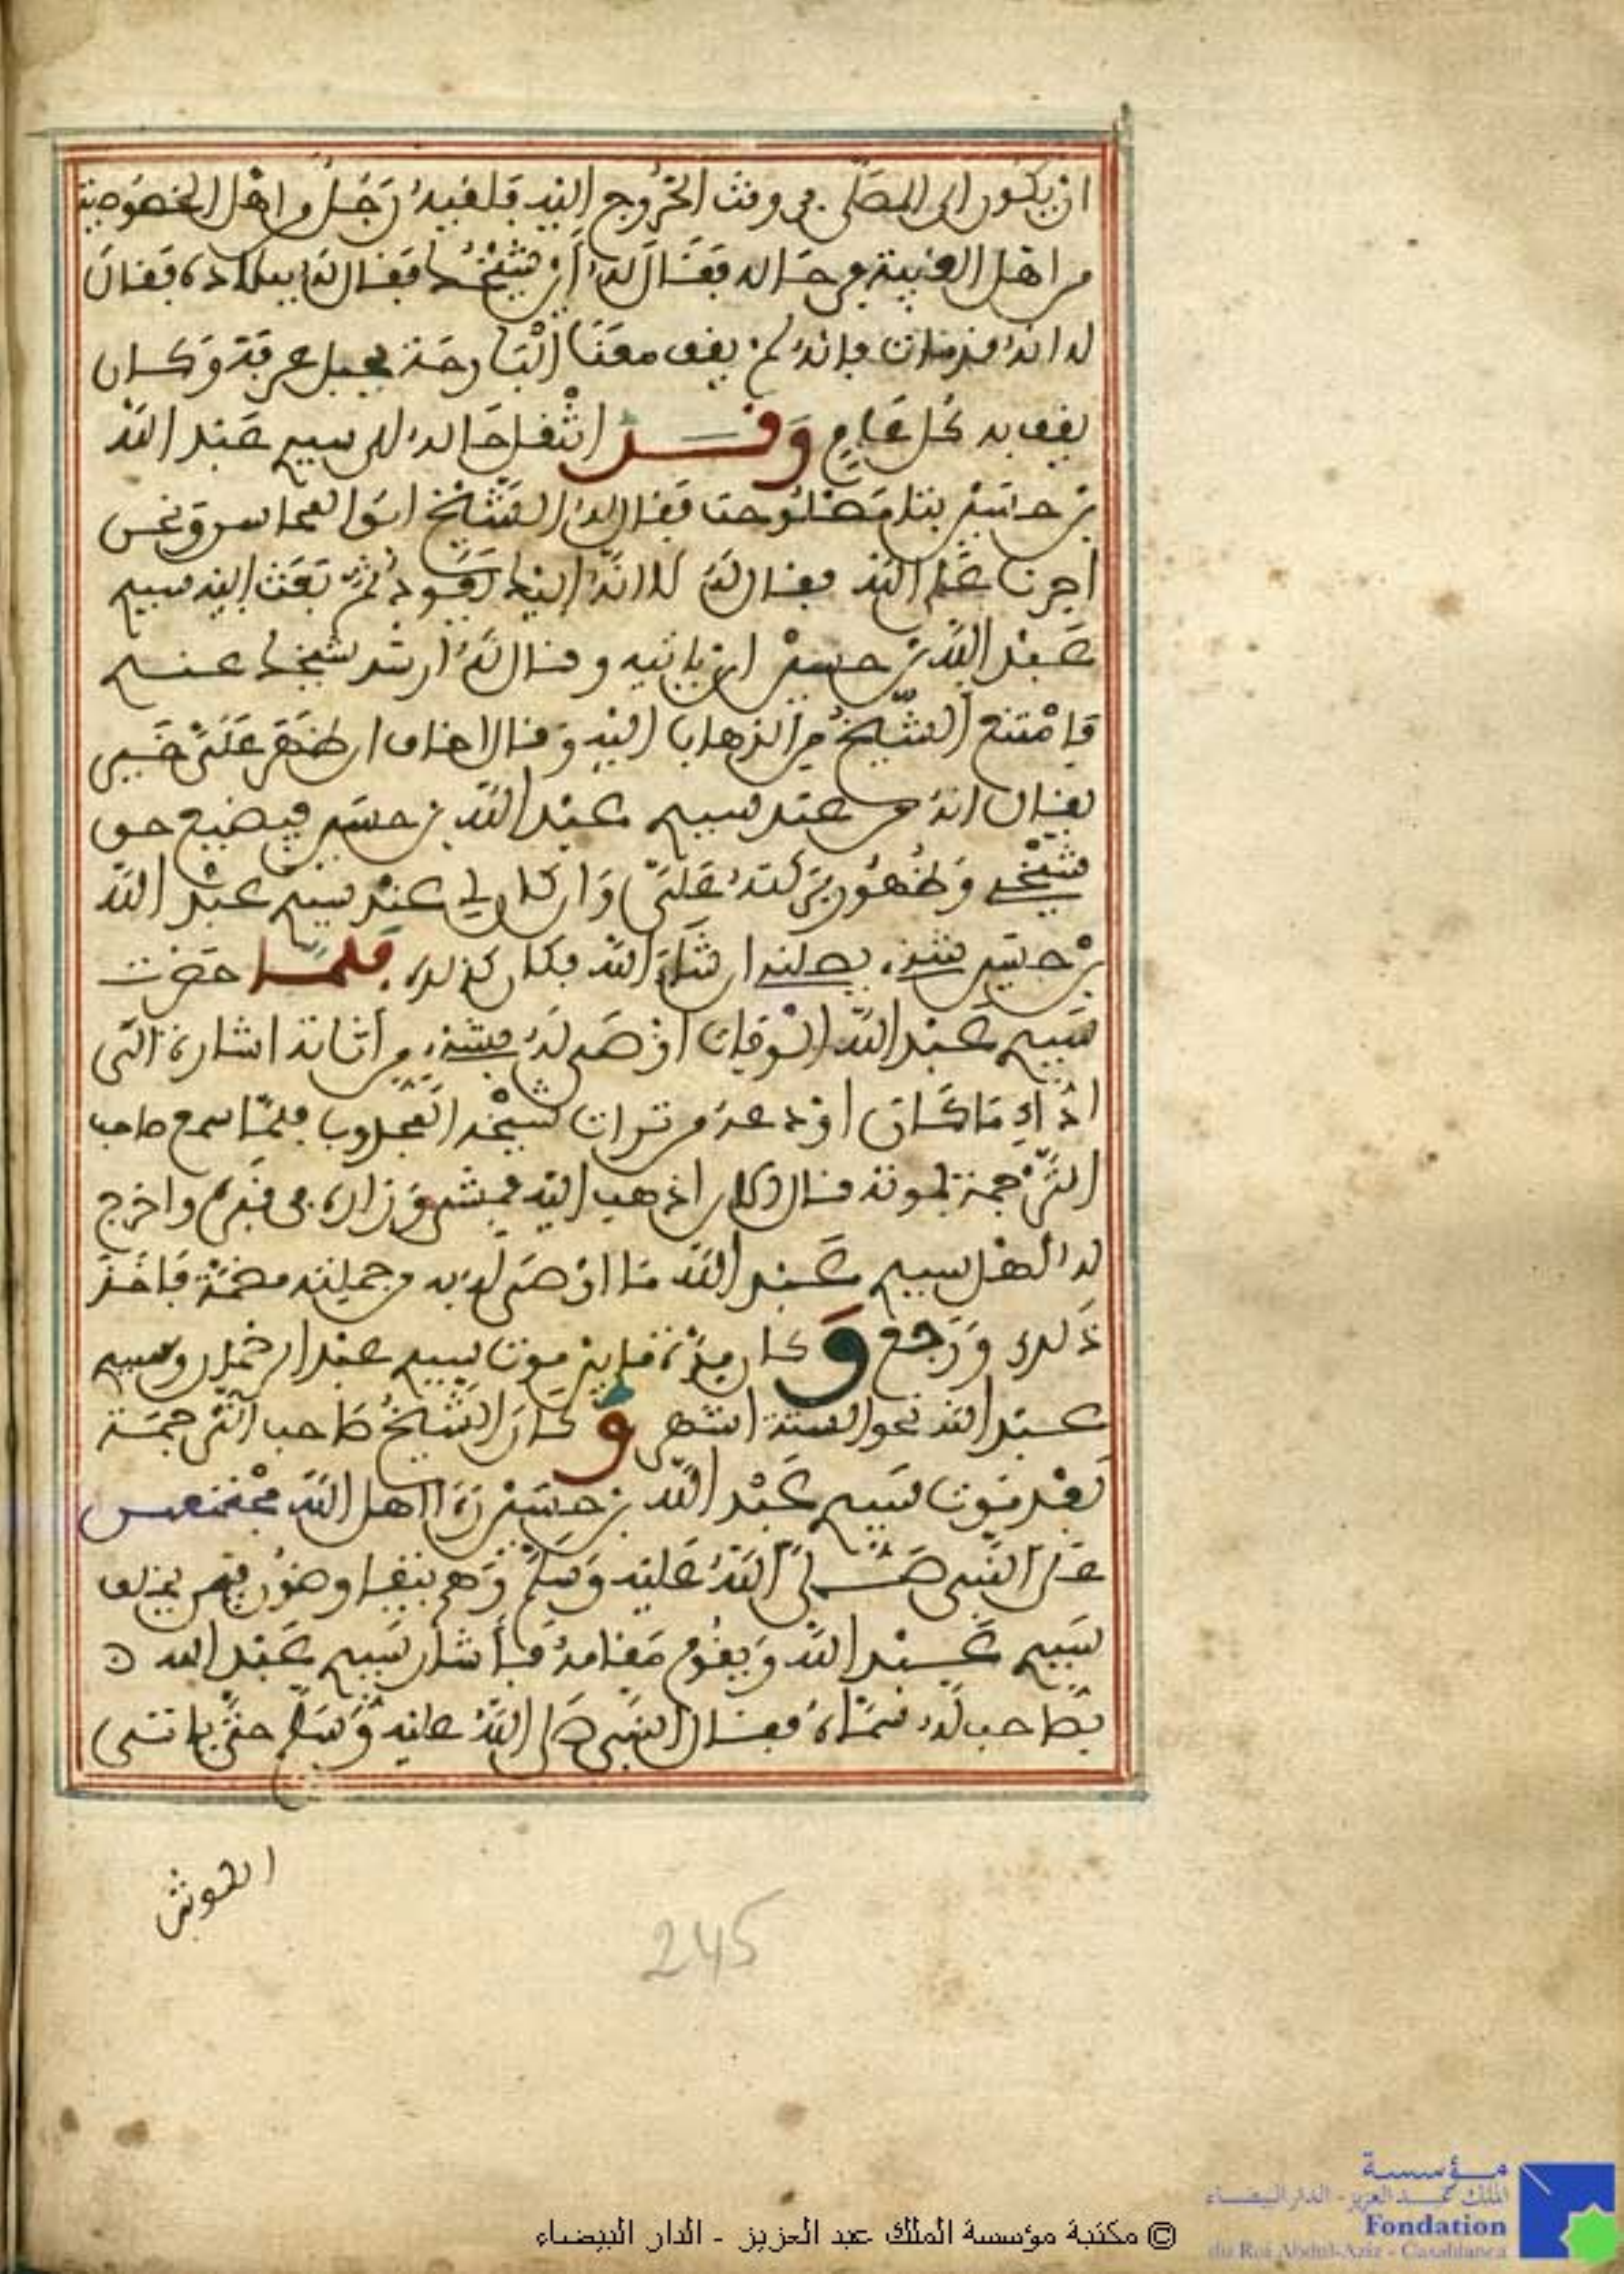 ان يكون الى المصلى في وقت الخروج اليه فلقيه رَجُل من اهل الخصوصية
من اهل الغيبة في حاله فقال له أين شيخك فقال له ببلاده فقال
له انه قد مات فانه لم يقف معنا البارحة بجبل عرفة وكان
يقف به كل عام وقد انتقل حاله الى سيدي عبد الله
بن حسين بتامصلوحت فقال له الشيخ
اجرنا على الله فقال له لا انه اليك يعود ثم بعث اليه سيدي
عبد الله بن حسين ان ياتيه وقال له ارث شيخك عندي
فامتنع الشيخ من الذهاب اليه وقال اخاف ان ظهر علي خير
يقال انه من عند سيدي عبد الله بن حسين فيضيع حق
شيخي وظهور بركته علي وان كان لي عند سيدي عبد الله
بن حسين شيء يصلني ان شاء الله فكان كذلك فلما حضرت
سيدي عبد الله الوفاة اوصى له بشيء من اثاثه اشارة الى
اداء ما كان اودعه من تراث شيخه المجذوب فلما سمع صاحب
الترجمة بموته قال الان اذهب اليه فمشى وزاره في قبره واخرج
له اهل سيدي عبد الله ما اوصى له به ومن جملته فاخذ
ذلك ورجع وكان مدة ما بين موت سيدي عبد الرحمان وسيدي
عبد الله نحو الستة اشهر وكان الشيخ صاحب الترجمة
بعد موت سيدي عبد الله بن حسين رءا اهل الله مجتمعين
على النبي صلى الله عليه وسلم وهم يتفاوضون فيمن يخلف
سيدي عبد الله ويقوم مقامه فأشار سيدي عبد الله
بصاحب له سماه فقال النبي صلى الله عليه وسلم حتى ياتى
245
© مكتبة مؤسسة الملك عبد العزيز - الدار البيضاء
مؤسسة
الملك عبد العزيز - الدار البيضاء
Fondation
du Roi Abdul-Aziz - Casablanca